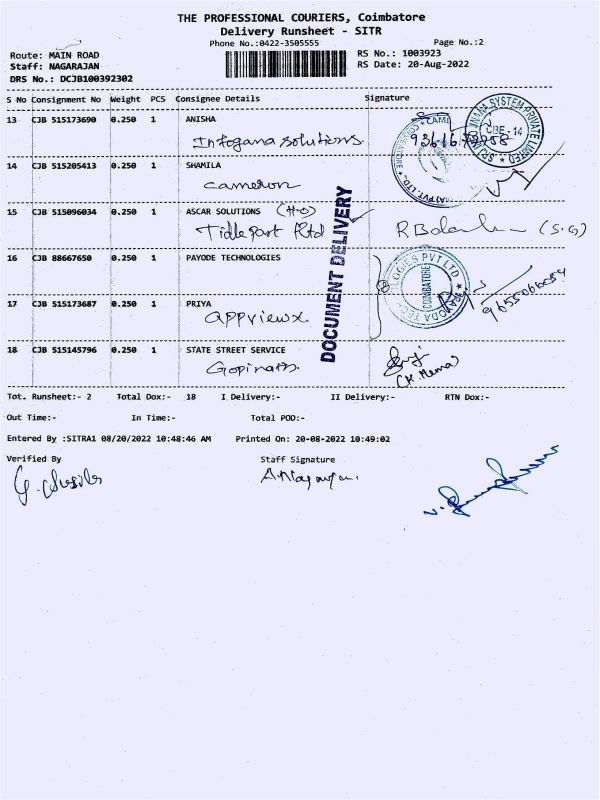 THE PROFESSIONAL COURIERS, Coimbatore
Delivery Runsheet - SITR
Phone No.:0422-3505555 Page No.:2
Route: MAIN ROAD RS No.: 1003923
Staff: NAGARAJAN RS Date: 20-Aug-2022
DRS No.: DCJB100392302
S No Consignment No Weight PCS Consignee Details Signature
13 CJB 515173690 0.250 1 ANISHA
Infogana Solutions
14 CJB 515205413 0.250 1 SHAMILA
Cameron
15 CJB 515096034 0.250 1 ASCAR SOLUTIONS (H-O)
Tidle Park Rd (S.G)
16 CJB 88667650 0.250 1 PAYODE TECHNOLOGIES
17 CJB 515173687 0.250 1 PRIYA
Appviewx
18 CJB 515145796 0.250 1 STATE STREET SERVICE
Gopinath
(K Hema)
DOCUMENT DELIVERY
SYSTEM PRIVATE LIMITED
CBE - 14
COIMBATORE
Tot. Runsheet:- 2 Total Dox:- 18 I Delivery:- II Delivery:- RTN Dox:-
Out Time:- In Time:- Total POD:-
Entered By :SITRA1 08/20/2022 10:48:46 AM Printed On: 20-08-2022 10:49:02
Verified By Staff Signature